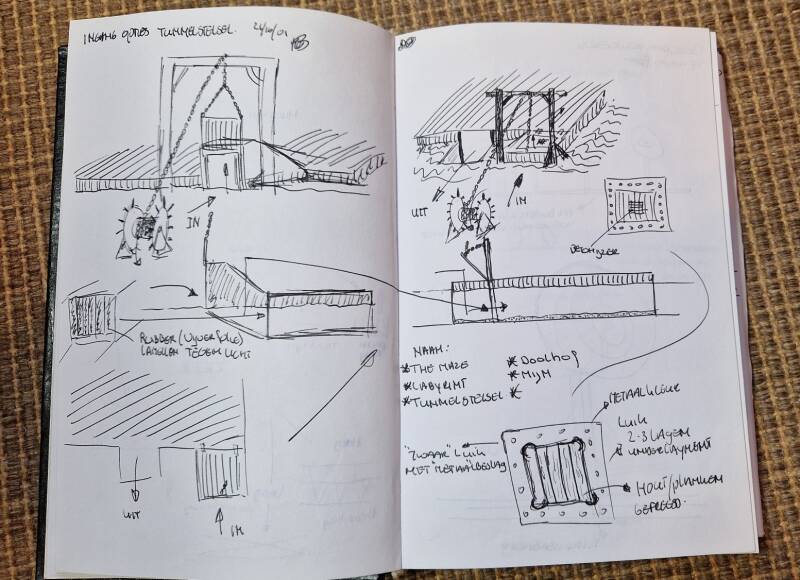 INGANG QORES TUNNELSTELSEL. 24/10/01
IN
RUBBER (VIJVERFOLIE)
LAMELLEN TEGEN LICHT
UIT
IN
UIT
IN
NAAM:
* THE MAZE
* LABYRINT
* TUNNELSTELSEL
* Doolhof
* MIJN
*
METAALKLEUR
LUIK
2-3 LAGEN
UNDERLAYMENT
"ZWAAR" LUIK
MET METAALBESLAG
HOUT/PLANKEN